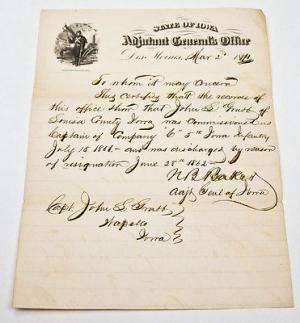 STATE OF IOWA
Adjutant General's Office
Des Moines, Mar 2d
To whom it may concern
This certifies that the records of
this office show that John L. Grubb of
Louisa County Iowa was commissioned as
Captain of Company "C" 5th Iowa Infantry
July 15 1861 - and was discharged by reason
of resignation June 28th 1862 -
N B Baker
Adjt Genl of Iowa
Capt John L. Grubb
Wapello
Iowa